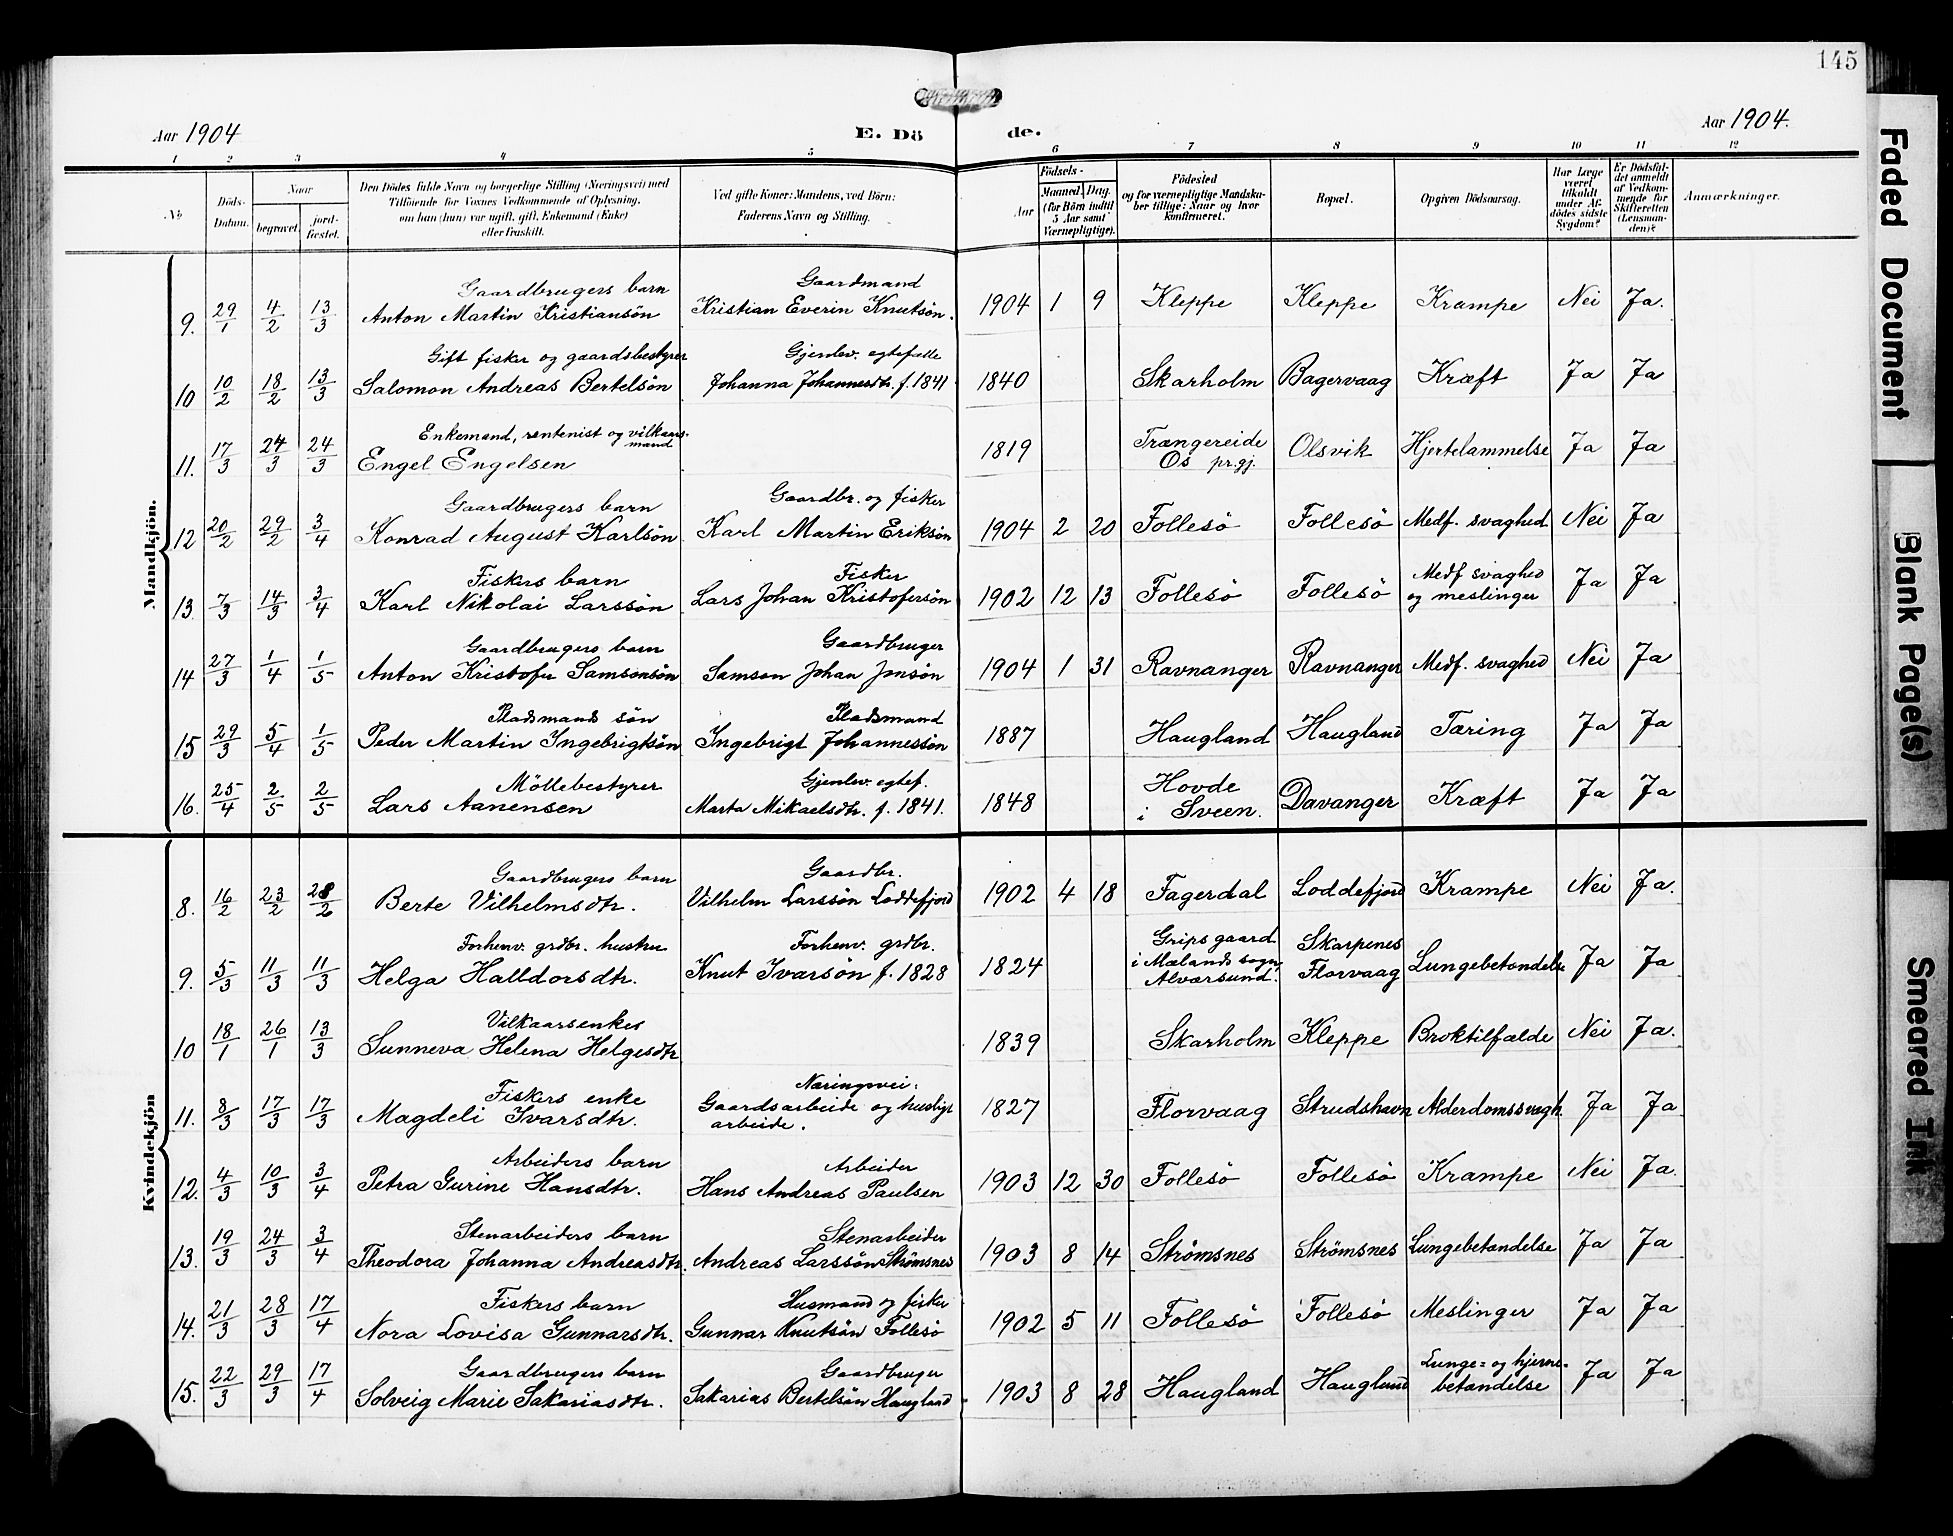 145
Aar 1904
E. Dö de.
Aar 1904.
1 2 3 4 5 6 7 8 9 10 11 12
No
Døds-Datum.
Naar
begravet.
jord-fæstet.
Den Dødes fulde Navn og borgerlige Stilling (Næringsvei) med
Tilföiende for Voxnes Vedkommende af Oplysning,
om han (hun) var ugift, gift, Enkemand (Enke)
eller fraskilt.
Ved gifte Koner: Mandens, ved Börn:
Faderens Navn og Stilling.
Födsels-
Aar
Maaned.
Dag.
(for Börn indtil
5 Aar samt
Værnepligtige).
Födested
og for værnepligtige Mandska-
ber tillige: Naar og hvor
konfirmeret.
Bopæl.
Opgiven Dödsaarsag.
Har Læge
været
tilkaldt
under Af-
dödes sidste
Sygdom?
Er Dödsfal-
det anmeldt
af Vedkom-
mende for
Skifteretten
(Lensman-
den)?
Anmærkninger.
Mandkjön.
Gaardbrugers barn Gaardmand
9. 29/1 4/2 13/3 Anton Martin Kristiansön Kristian Everin Knutsøn. 1904 1 9 Kleppe Kleppe Krampe Nei Ja.
Gift fisker og gaardsbestyrer Gjenlev. egtefelle
10 10/2 18/2 13/3 Salomon Andreas Bertelsön Johanna Johannesdtr. f. 1841 1840 Skarholm Bagervaag Kræft Ja Ja
Enkemand, rentenist og vilkaars-
mand
11. 17/3 24/3 24/3 Engel Engelsen 1819 Trængereide Os pr.gj. Olsvik Hjertelammelse Ja Ja
Gaardbrugers barn Gaardbr. og fisker
12 20/2 29/2 3/4 Konrad August Karlsön Karl Martin Eriksön 1904 2 20 Follesö Follesö Medf. svaghed Nei Ja
Fiskers barn Fisker
13. 7/3 14/3 3/4 Karl Nikolai Larssön Lars Johan Kristofersön 1902 12 13 Follesö Follesö Medf svaghed og meslinger Ja Ja
Gaardbrugers barn Gaardbruger
14 27/3 1/4 1/5 Anton Kristofer Samsonsön Samson Johan Jonsön 1904 1 31 Ravnanger Ravnanger Medf. svaghed Nei Ja
Pladsmands sön Pladsmand
15 29/3 5/4 1/5 Peder Martin Ingebrigtsön Ingebrigt Johannessön 1887 Haugland Haugland Tæring Ja Ja
Möllebestyrer Gjenlev. egtef.
16. 25/4 2/5 2/5 Lars Aanensen Marta Mikaelsdtr. f. 1841. 1848 Hovde i Sveen. Davanger Kræft Ja Ja
Kvindekjön
Gaardbrugers barn Gaardbr.
8. 16/2 23/2 28/2 Berte Vilhelmsdtr. Vilhelm Larssön Loddefjord 1902 4 18 Fagerdal Loddefjord Krampe Nei Ja.
Forhenv. grdbr. hustru Forhenv. grdbr.
9. 5/3 11/3 11/3 Helga Halldorsdtr. Knut Ivarsön f. 1828 1824 Gripsgaard i Mælands sogn, Alværsund. Skarpenes Florvaag Lungebetændelse Ja Ja
Vilkaarsenke
10 18/1 26/1 13/3 Sunneva Helena Helgesdtr 1839 Skarholm Kleppe Broktilfælde Nei Ja.
Fiskers enke Næringsvei:
11. 8/3 17/3 17/3 Magdeli Ivarsdtr. Gaardsarbeide og husligt arbeide. 1827 Florvaag Strudshavn Alderdomssvagh. Ja Ja
Arbeiders barn Arbeider
12. 4/3 10/3 3/4 Petra Gurine Hansdtr. Hans Andreas Paulsen 1903 12 30 Follesö Follesö Krampe Nei Ja.
Stenarbeiders barn Stenarbeider
13. 19/3 24/3 3/4 Theodora Johanna Andreasdtr. Andreas Larssön Strömsnes 1903 8 14 Strömsnes Strömsnes Lungebetændelse Ja Ja
Fiskers barn Husmand og fisker
14. 21/3 28/3 17/4 Nora Lovisa Gunnarsdtr. Gunnar Knutsön Follesö 1902 5 11 Follesö Follesö Meslinger Ja Ja
Gaardbrugers barn Gaardbruger
15. 22/3 29/3 17/4 Solveig Marie Sakariasdtr. Sakarias Bertelsön Haugland 1903 8 28 Haugland Haugland Lunge= og hjerne-betændelse Ja Ja
Faded Document
Blank Page(s)
Smeared Ink